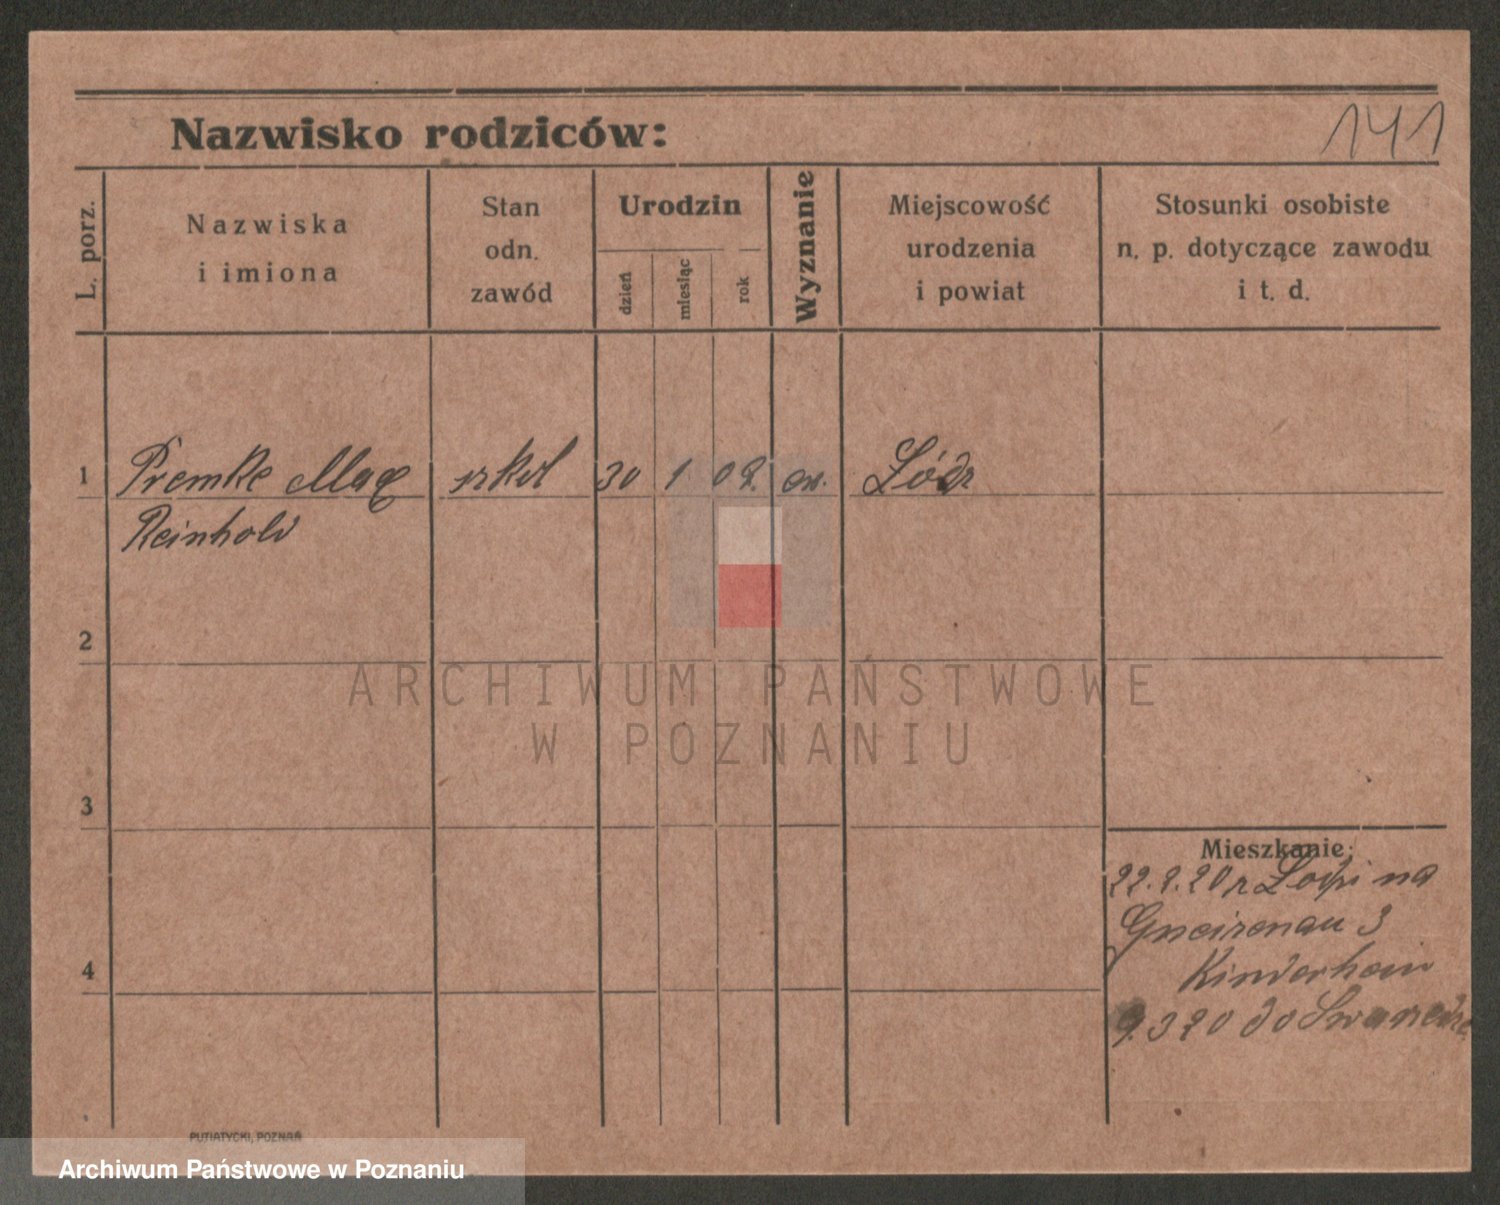 141
Nazwisko rodziców:
L. porz.
Nazwiska
i imiona
Stan
odn.
zawód
Urodzin
dzień
miesiąc
rok
Wyznanie
Miejscowość
urodzenia
i powiat
Stosunki osobiste
n. p. dotyczące zawodu
i t. d.
1 Premke Max 30 1 09. ew. Łódz
Reinhold
2
3
4
Mieszkanie:
22.2.20 z Łodzi na
Gneisenau 3
Kinderheim
9.3 20 do
ARCHIWUM PAŃSTWOWE
W POZNANIU
PUTIATYCKI, POZNAŃ
Archiwum Państwowe w Poznaniu